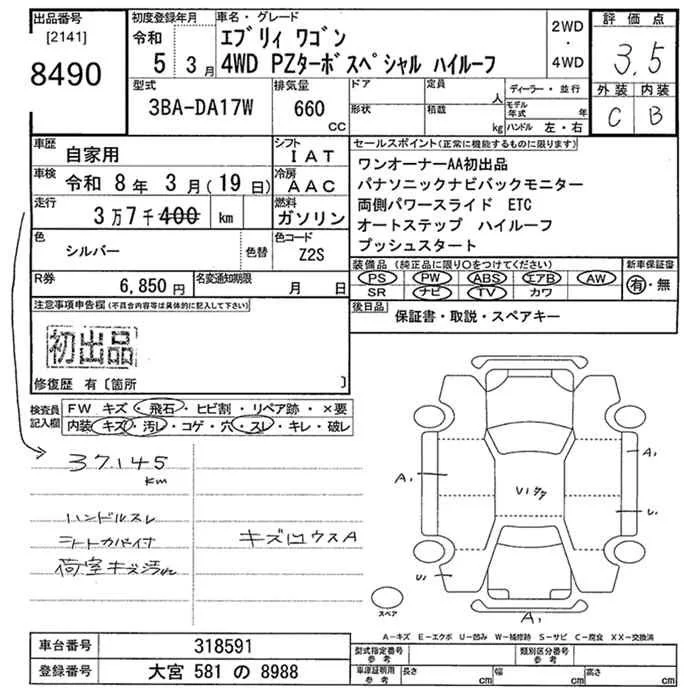 出品番号
[2141]
8490
初度登録年月
令和
5 3月
車名・グレード
エブリィ ワゴン
4WD PZターボスペシャル ハイルーフ
2WD
・
4WD
評価点
3.5
外装 内装
C B
型式
3BA-DA17W
排気量
660
CC
ドア 定員 人
形状 積載 kg
ディーラー・並行
モデル年式 年
ハンドル 左・右
車歴 自家用
シフト IAT
車検 令和 8年 3月(19日)
冷房 AAC
走行 3万7千400 km
燃料 ガソリン
色 シルバー 色替
色コード Z2S
R券 6,850円
名変通知期限 月 日
セールスポイント(正常に機能するものに限ります)
ワンオーナーAA初出品
パナソニックナビバックモニター
両側パワースライド ETC
オートステップ ハイルーフ
プッシュスタート
装備品(純正品に限り〇をつけてください)
PS PW ABS エアB AW
SR ナビ TV カワ
新車保証書
有・無
後日品 保証書・取説・スペアキー
注意事項申告欄(不具合内容等は具体的に記入して下さい)
初出品
修復歴 有〔箇所 〕
検査員記入欄
FW キズ・飛石・ヒビ割・リペア跡・×要
内装 キズ・汚レ・コゲ・穴・スレ・キレ・破レ
37,145
km
ハンドルスレ
シートカバー付
荷室キズ汚レ
キズ凹ウスA
A1
A1
U1
U1
A1
スペア
A-キズ E-エクボ U-凹み W-補修跡 S-サビ C-腐食 XX-交換済
車台番号 318591
登録番号 大宮 581 の 8988
型式指定番号 参考
類別区分番号 参考
車庫証明用 参考
長さ cm 幅 cm 高さ cm